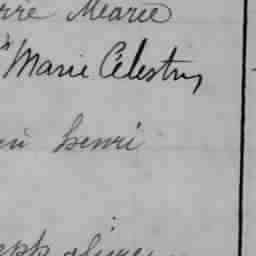 rre Marie
" Marie Célestin
en henri